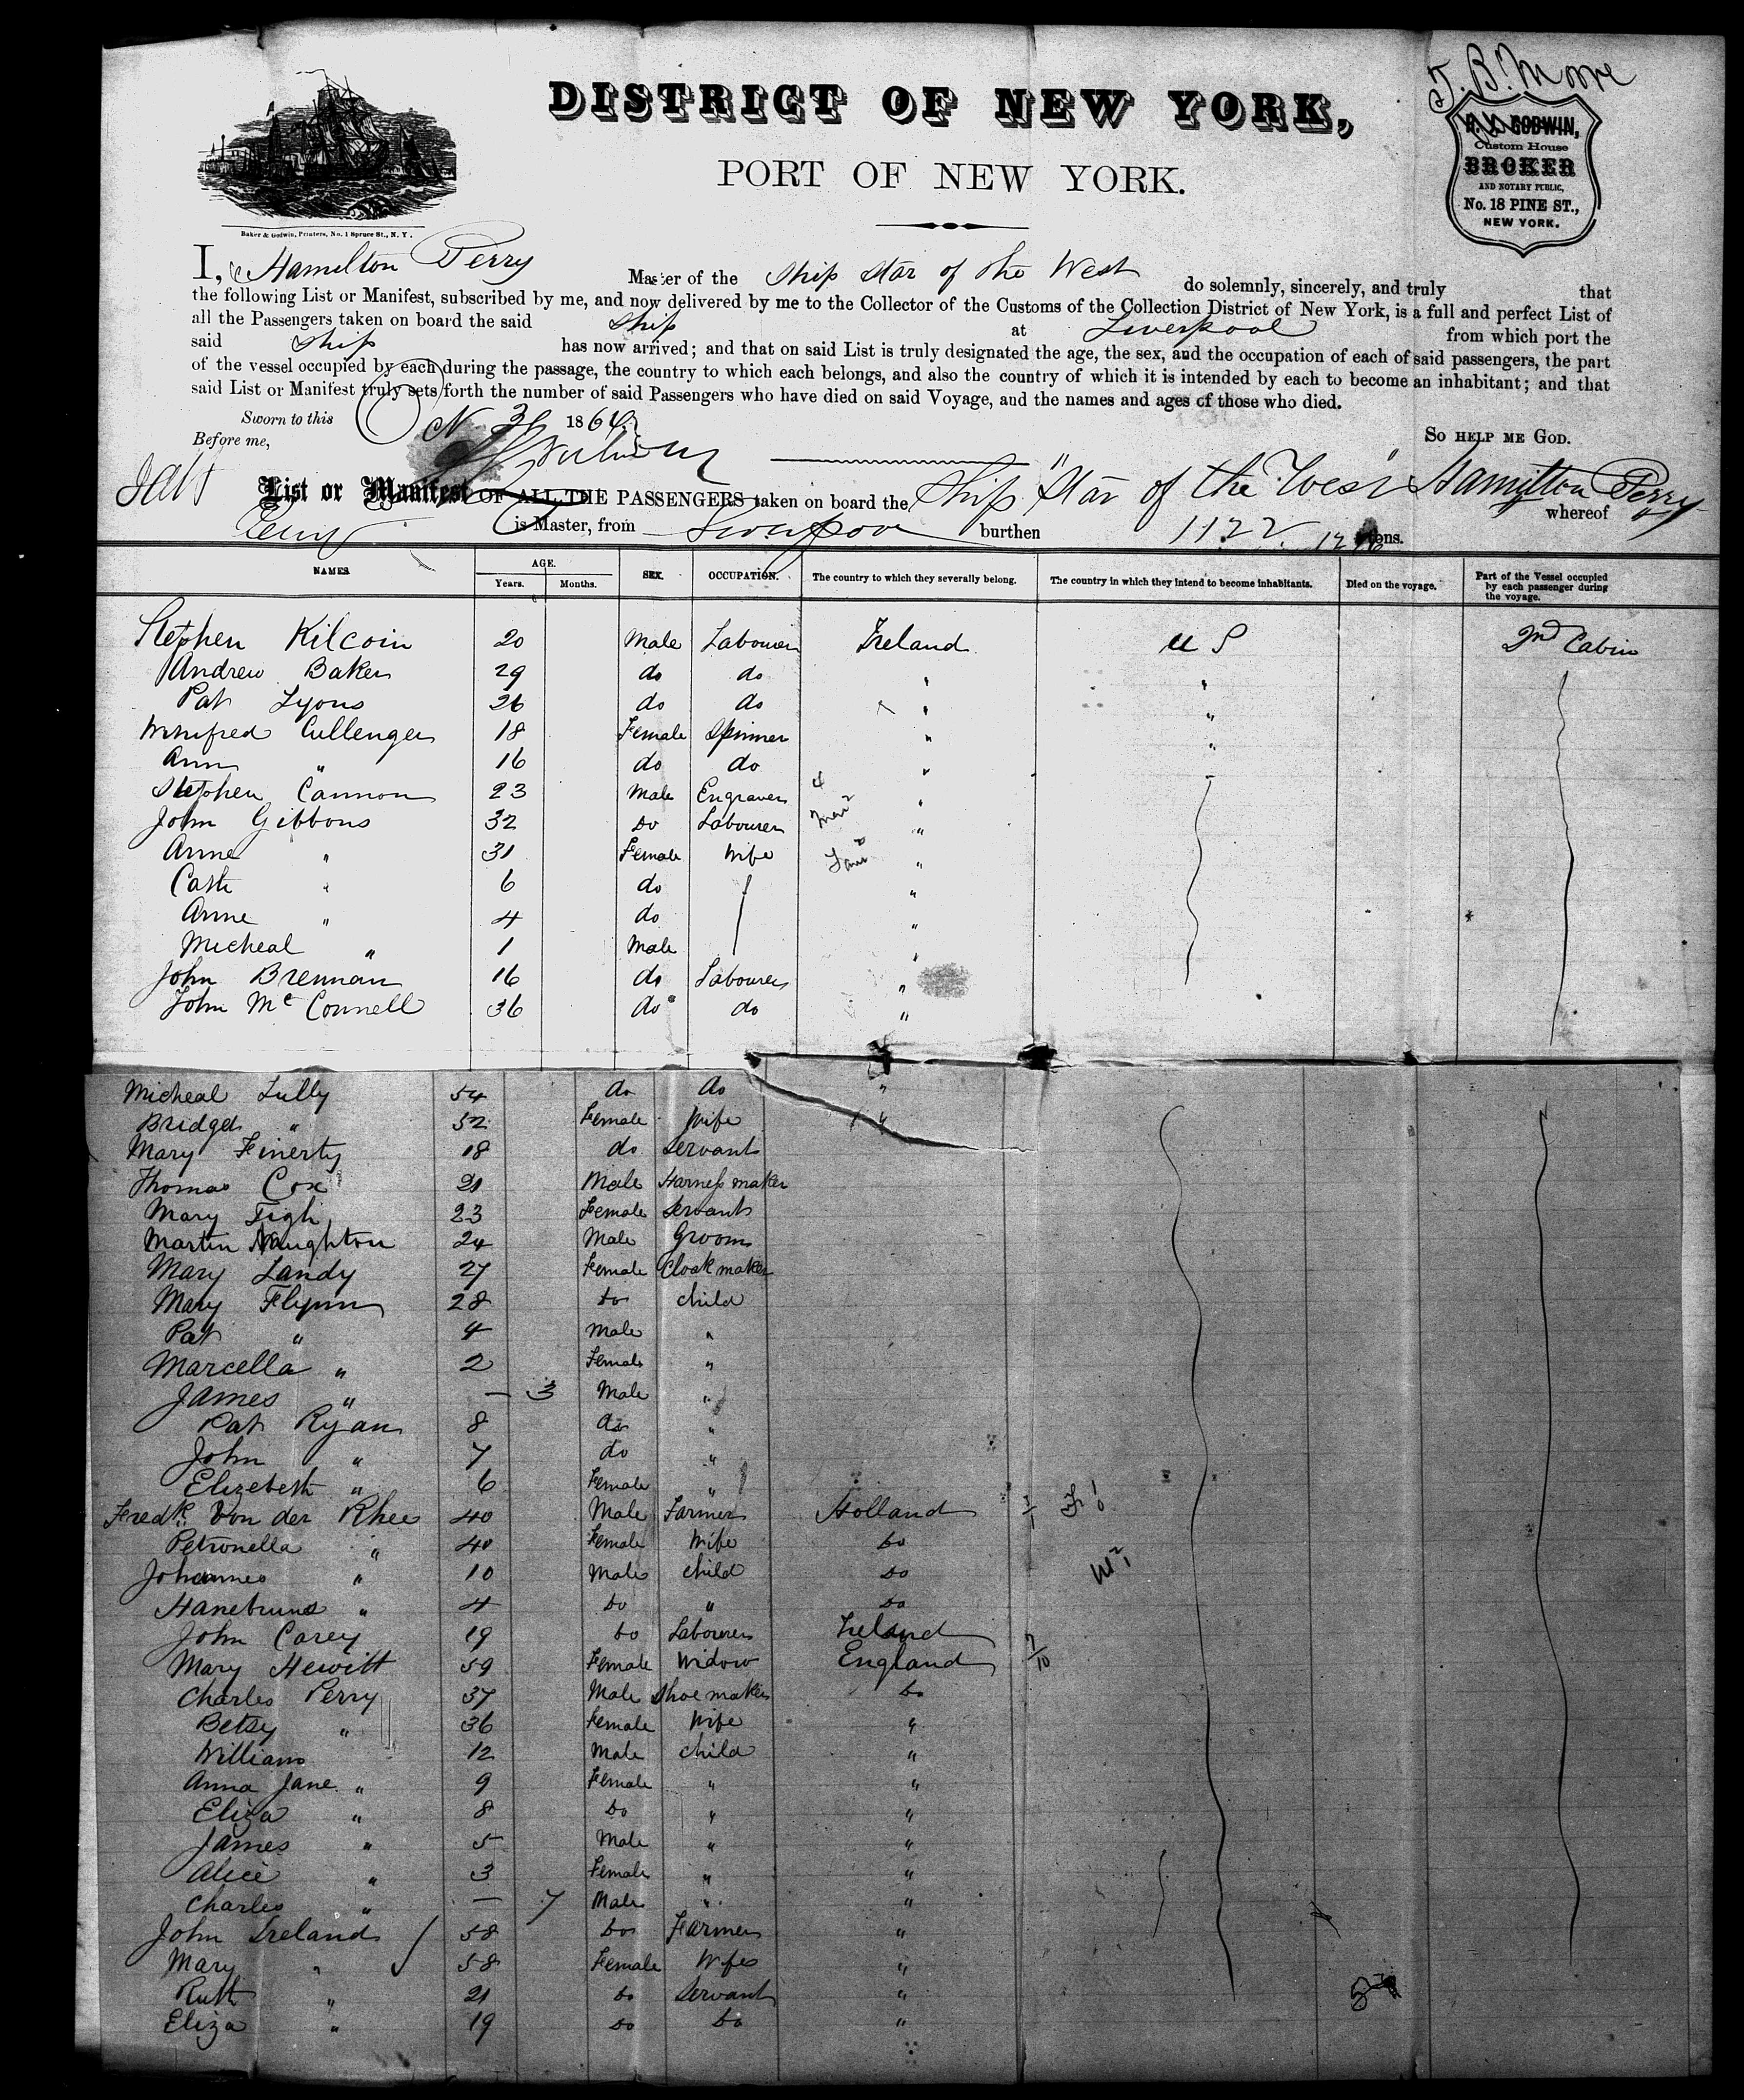 J. B. Moore
DISTRICT OF NEW YORK,
PORT OF NEW YORK.
GODWIN,
Custom House
BROKER
AND NOTARY PUBLIC,
No. 18 PINE ST.,
NEW YORK.
Baker & Godwin, Printers, No. 1 Spruce St., N. Y.
I, Hamilton Perry Master of the Ship Star of the West do solemnly, sincerely, and truly that
the following List or Manifest, subscribed by me, and now delivered by me to the Collector of the Customs of the Collection District of New York, is a full and perfect List of
all the Passengers taken on board the said Ship at Liverpool from which port the
said Ship has now arrived; and that on said List is truly designated the age, the sex, and the occupation of each of said passengers, the part
of the vessel occupied by each during the passage, the country to which each belongs, and also the country of which it is intended by each to become an inhabitant; and that
said List or Manifest truly sets forth the number of said Passengers who have died on said Voyage, and the names and ages of those who died.
Sworn to this 3 1864
Before me, SO HELP ME GOD.
List or Manifest OF ALL THE PASSENGERS taken on board the Ship "Star of the West" Hamilton Perry whereof
is Master, from Liverpool burthen 1122 tons.
NAMES AGE. SEX. OCCUPATION. The country to which they severally belong. The country in which they intend to become inhabitants. Died on the voyage. Part of the Vessel occupied by each passenger during the voyage.
Years. Months.
Stephen Kilcoin 20 Male Labourer Ireland U S 2nd Cabin
Andrew Baker 29 do do "
Pat Lyons 26 do do " "
Winifred Cullenger 18 Female Spinner " "
Ann " 16 do do "
Stephen Cannon 23 Male Engraver "
John Gibbons 32 do Labourer "
Anne " 31 Female Wife "
Cath " 6 do "
Anne " 4 do "
Micheal " 1 Male "
John Brennan 16 do Labourer "
John Mc Connell 36 do do "
Micheal Lully 54 do do "
Bridget " 52 Female Wife "
Mary Finerty 18 do Servant
Thomas Cox 21 Male Harness maker
Mary Tigh 23 Female Servant
Martin Naughton 24 Male Groom
Mary Landy 27 Female Cloak maker
Mary Flynn 28 do child
Pat " 4 Male "
Marcella " 2 Female "
James " — 3 Male "
Pat Ryan 8 do "
John " 7 do "
Elizebeth " 6 Female "
Fredk. Von der Rhee 40 Male Farmer Holland
Petronella " 40 Female Wife do
Johannes " 10 Male child do
" 4 do " do
John Carey 19 do Labourer Ireland
Mary Hewitt 59 Female Widow England
Charles Perry 37 Male Shoe maker do
Betsy " 36 Female Wife "
William 12 Male child "
Anna Jane " 9 Female " "
Eliza " 8 do " "
James " 5 Male " "
Alice " 3 Female " "
Charles " — 7 Male " "
John Ireland 58 do Farmer "
Mary " 58 Female Wife "
Ruth " 21 do Servant "
Eliza " 19 do do "